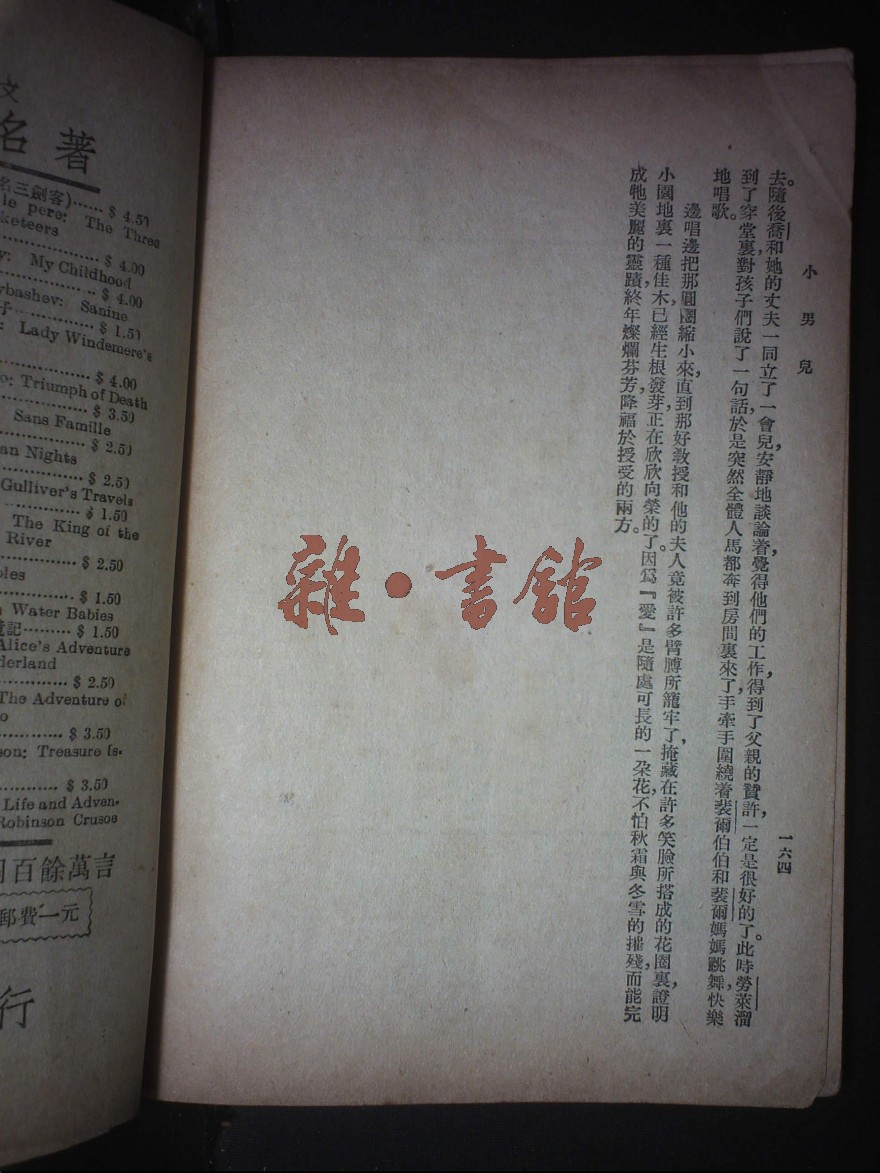 小男兒
一六四
去。隨後喬和她的丈夫一同立了一會兒,安靜地談論着,覺得他們的工作,得到了父親的贊許,一定是很好的了。此時勞萊溜
到了穿堂裏,對孩子們說了一句話,於是突然全體人馬都奔到房間裏來了,手牽手圍繞着裴爾伯伯和裴爾媽媽跳舞,快樂
地唱歌。
邊唱邊把那圓圈縮小來,直到那好教授和他的夫人竟被許多臂膊所籠牢了,掩藏在許多笑臉所搭成的花園裏,證明
小園地裏一種佳木,已經生根發芽,正在欣欣向榮的了。因爲『愛』是隨處可長的一朶花,不怕秋霜與冬雪的摧殘,而能完
成牠美麗的靈蹟,終年燦爛芬芳,降福於授受的兩方。
雜·書館
文
名著
名三劍客)...... $ 4.50
le pere: The Three
keteers
$ 4.00
y: My Childhood
$ 4.00
ybashev: Sanine
子 $ 1.50
: Lady Windemere's
$ 4.00
o: Triumph of Death
$ 3.50
Sans Famille
$ 2.50
an Nights
$ 2.50
Gulliver's Travels
$ 1.50
The King of the
River
$ 2.50
oles
$ 1.50
Water Babies
記 $ 1.50
Alice's Adventure
derland
$ 2.50
The Adventure of
o
$ 3.50
son: Treasure Is-
$ 3.50
Life and Adven-
Robinson Crusoe
百餘萬言
郵費一元
行